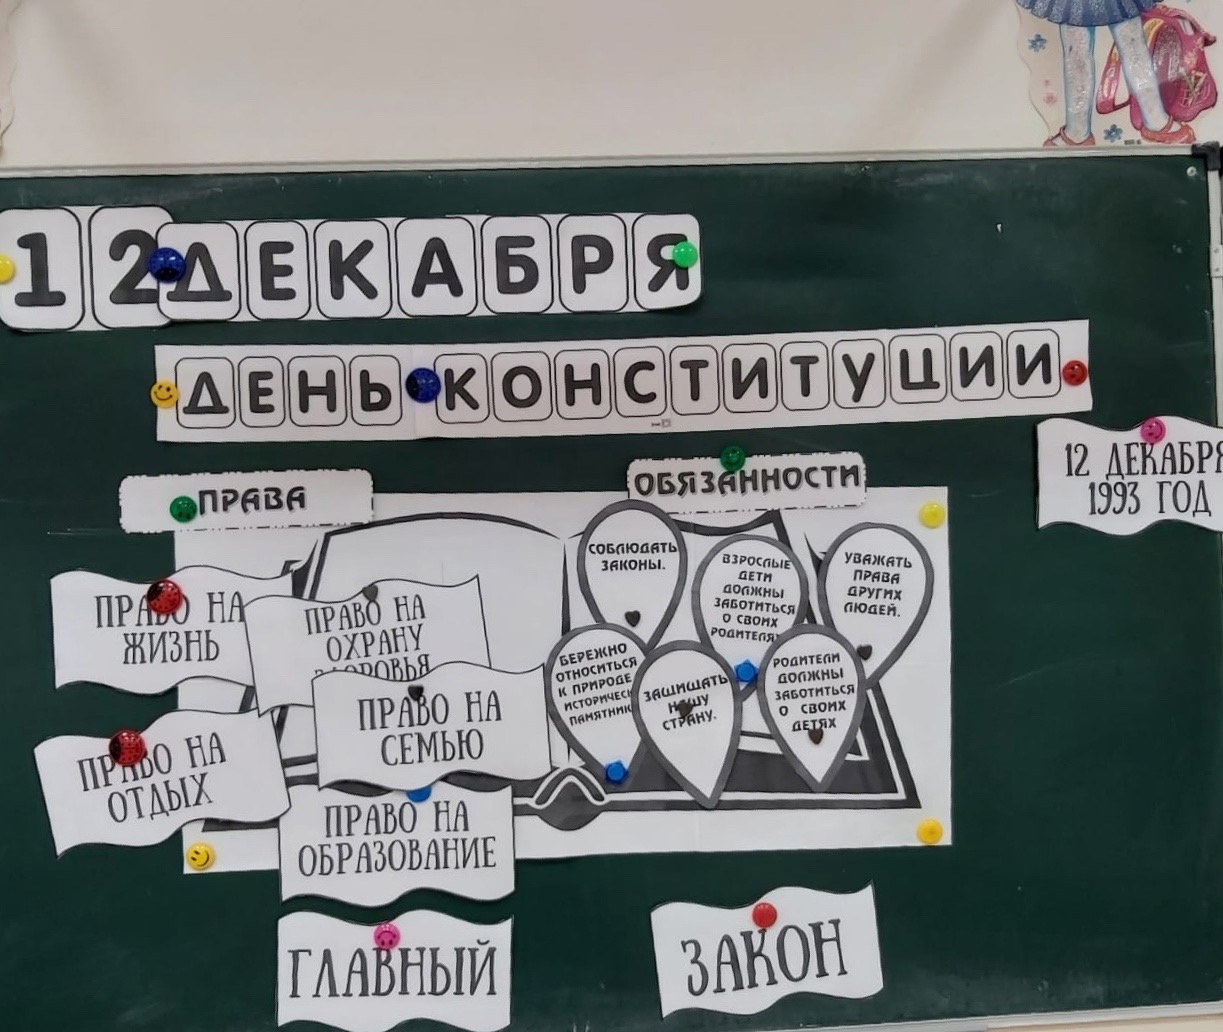 12 ДЕКАБРЯ
ДЕНЬ КОНСТИТУЦИИ
12 ДЕКАБРЯ
1993 ГОД
ПРАВА
ПРАВО НА
ЖИЗНЬ
ПРАВО НА
ОХРАНУ
ЗДОРОВЬЯ
ПРАВО НА
СЕМЬЮ
ПРАВО НА
ОТДЫХ
ПРАВО НА
ОБРАЗОВАНИЕ
ОБЯЗАННОСТИ
СОБЛЮДАТЬ
ЗАКОНЫ.
ВЗРОСЛЫЕ
ДЕТИ
ДОЛЖНЫ
ЗАБОТИТЬСЯ
О СВОИХ
РОДИТЕЛЯ
УВАЖАТЬ
ПРАВА
ДРУГИХ
ЛЮДЕЙ.
БЕРЕЖНО
ОТНОСИТЬСЯ
К ПРИРОДЕ
ИСТОРИЧЕС
ПАМЯТНИК
ЗАЩИЩАТЬ
НАШУ
СТРАНУ.
РОДИТЕЛИ
ДОЛЖНЫ
ЗАБОТИТЬСЯ
О СВОИХ
ДЕТЯХ
ГЛАВНЫЙ
ЗАКОН